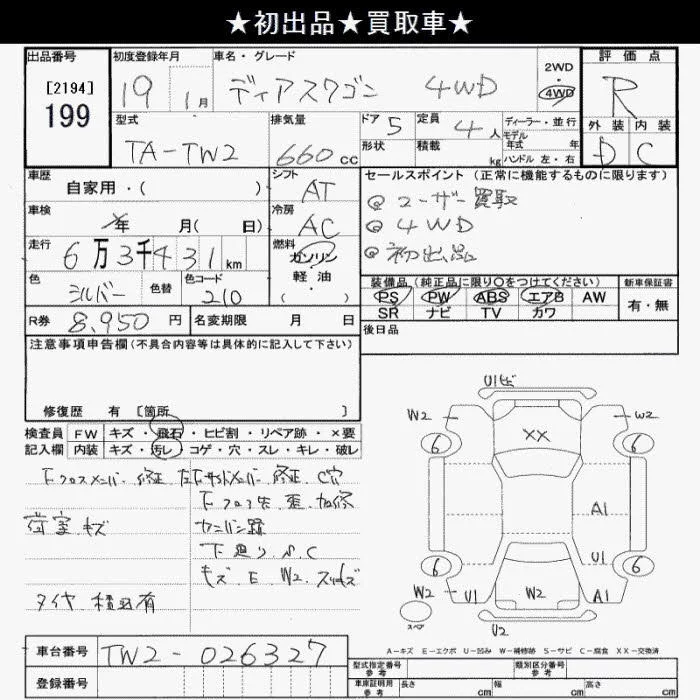 ★初出品★買取車★
出品番号
[2194]
199
初度登録年月
19 1月
車名・グレード
ディアスワゴン 4WD
2WD
・
4WD
評価点
R
外装 内装
D C
型式
TA-TW2
排気量
660cc
ドア 5
形状
定員 4人
積載 kg
ディーラー・並行
モデル
年式 年
ハンドル 左・右
車歴
自家用・( )
シフト
AT
セールスポイント(正常に機能するものに限ります)
@ ユーザー買取
@ 4WD
@ 初出品
車検
年 月( 日)
冷房
AC
走行
6万3千431km
燃料
ガソリン
軽油
( ・ )
色
シルバー
色替
色コード
210
装備品(純正品に限り○をつけてください)
PS PW ABS エアB AW
SR ナビ TV カワ
新車保証書
有・無
R券 8,950円
名変期限 月 日
後日品
注意事項申告欄(不具合内容等は具体的に記入して下さい)
修復歴 有 [箇所 ]
検査員 FW キズ・飛石・ヒビ割・リペア跡・×要
記入欄 内装 キズ・汚レ・コゲ・穴・スレ・キレ・破レ
荷室キズ
下廻りSC
キズ.E W2.
タイヤ 積込有
U1ヒビ
W2 W2
XX
6 6
A1
U1
6 6
W2 W2 W2
U1 A1
スペア
U2
A-キズ E-エクボ U-凹み W-補修跡 S-サビ C-腐食 XX-交換済
車台番号 TW2-026327
登録番号
型式指定番号
参考
類別区分番号
参考
車庫証明用
参考
長さ cm 幅 cm 高さ cm